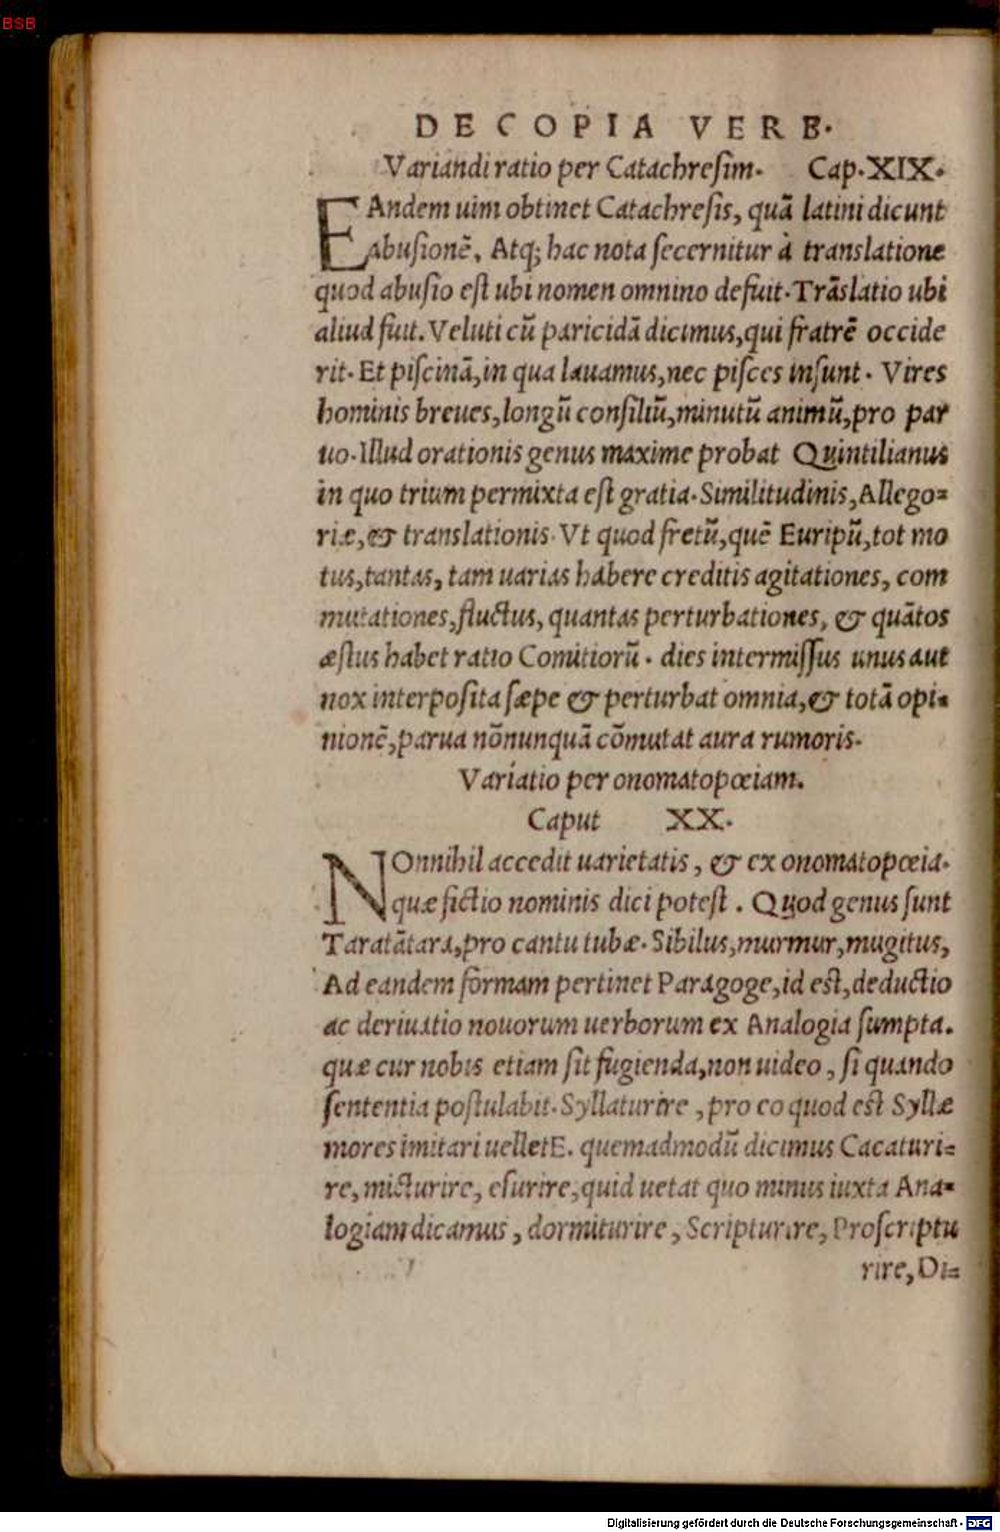 BSB
DE COPIA VERB.
Variandi ratio per Catachresim. Cap. XIX.
EAndem uim obtinet Catachresis, quã latini dicunt
abusionẽ. Atq; hac nota secernitur à translatione
quod abusio est ubi nomen omnino defuit. Trãslatio ubi
aliud fuit. Veluti cũ paricidã dicimus, qui fratrẽ occide
rit. Et piscinã, in qua lauamus, nec pisces insunt. Vires
hominis breues, longũ consiliũ, minutũ animũ, pro par
uo. Illud orationis genus maxime probat Quintilianus
in quo trium permixta est gratia. Similitudinis, Allego=
riæ, & translationis. Vt quod fretũ, quẽ Euripũ, tot mo
tus, tantas, tam uarias habere creditis agitationes, com
mutationes, fluctus, quantas perturbationes, & quãtos
æstus habet ratio Comitiorũ. dies intermissus unus aut
nox interposita sæpe & perturbat omnia, & totã opi=
nionẽ, parua nõnunquã cõmutat aura rumoris.
Variatio per onomatopœiam.
Caput XX.
NOnnihil accedit uarietatis, & ex onomatopœia.
quæ fictio nominis dici potest. Quod genus sunt
Taratãtara, pro cantu tubæ. Sibilus, murmur, mugitus,
Ad eandem formam pertinet Paragoge, id est, deductio
ac deriuatio nouorum uerborum ex Analogia sumpta.
quæ cur nobis etiam sit fugienda, non uideo, si quando
sententia postulabit. Syllaturire, pro eo quod est Syllæ
mores imitari uelletE. quemadmodũ dicimus Cacaturi=
re, micturire, esurire, quid uetat quo minus iuxta Ana=
logiam dicamus, dormiturire, Scripturire, Proscriptu
rire, Di=
Digitalisierung gefördert durch die Deutsche Forschungsgemeinschaft - DFG